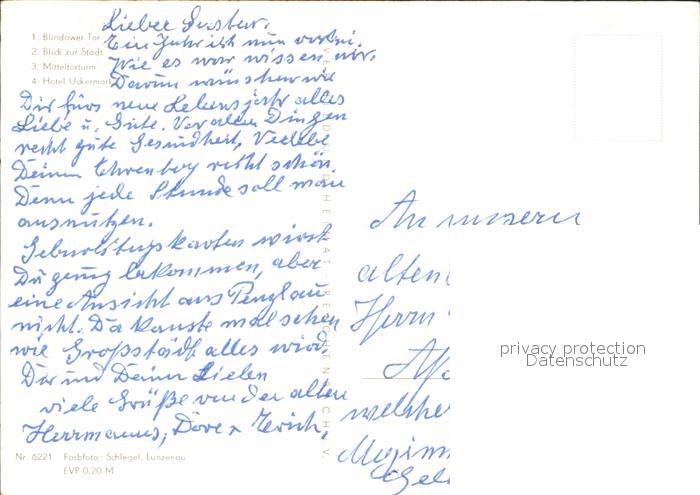 1. Blindower Tor
2. Blick zur Stadt
3. Mitteltorturm
4. Hotel Uckermark
Lieber Gustav.
Ein Jahr ist nun vorbei.
Wie es war wissen wir.
Darum wünschen wir
Dir fürs neue Lebensjahr alles
Liebe u. Gute. Vor allen Dingen
recht gute Gesundheit, Verlebe
Deinen Ehrentag recht schön
Denn jede Stunde soll man
ausnutzen.
Geburtstagskarten wirst
Du genug bekommen, aber
eine Ansicht aus Prenzlau
nicht. Da kannste mal sehen
wie Großstadt alles wird.
Dir und Deinen Lieben
viele Grüße von der alten
Herrmanns,
Nr. 6221 Farbfoto: Schlegel, Lunzenau
EVP 0.20 M
REICHENBACH I. V.
An unseren
alten
Herrn
welche
privacy protection
Datenschutz